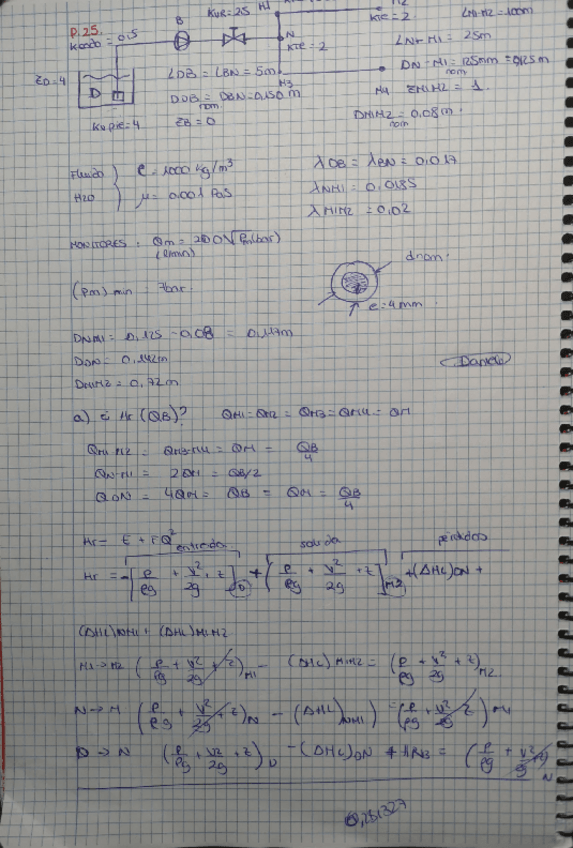 P.25.
Kcodo = 0,5
B
Kvr = 25
M1
M2
Kte = 2
LM1-M2 = 100m
N
Kte = 2
LN-M1 = 25m
ZD = 4
D
LDB = LBN = 5m
M3
M4
DN-M1 = 125mm = 0,125m
nom
DDB = DBN = 0,150m
nom
ZM1M2 = 1.
Kvpie = 4
ZB = 0
DM1M2 = 0,08m.
nom
Fluido
H2O
ρ = 1000 kg/m³
μ = 0,001 Pas
λDB = λBN = 0,017
λNM1 = 0,0185
λM1M2 = 0,02
MONITORES: Qm = 200√Pm(bar)
(l/min)
(Pm) min = 7bar.
dnom.
e = 4mm.
DNM1 = 0,125 - 0,08 = 0,117m
DDN = 0,142m
DM1M2 = 0,72m
a) ¿ Hr (QB)? QM1 = QM2 = QM3 = QM4 = QM
QM1M2 = QM3-M4 = QM = QB/4
QN-M1 = 2QM = QB/2
QDN = 4QM = QB = QM = QB/4
Hr = E + FQ²
entrada
salida
pérdidas
Hr = -[P/ρg + v²/2g + z]D + [P/ρg + v²/2g + z]M2 + (ΔHL)DN +
(ΔHL)NM1 + (ΔHL)M1M2
M1 → M2 (P/ρg + v²/2g + z)M1 - (ΔHL)M1M2 = (P/ρg + v²/2g + z)M2
N → M (P/ρg + v²/2g + z)N - (ΔHL)NM1 = (P/ρg + v²/2g + z)M1
D → N (P/ρg + v²/2g + z)D - (ΔHL)DN + HRB = (P/ρg + v²/2g + z)N